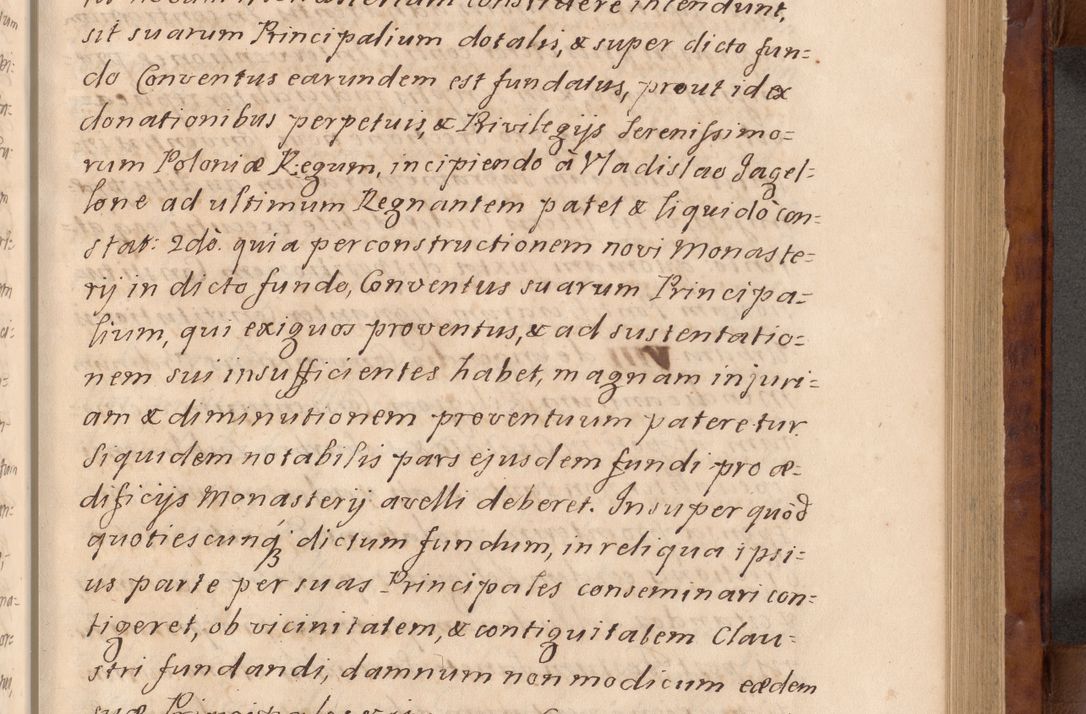 construere intendunt,
sit suarum Principalium dotalis, & super dicto fun=
do Conventus earundem est fundatus, prout id ex
donationibus perpetuis, & Privilegijs Serenissimo=
rum Poloniæ Regum, incipiendo à Vladislao Jagel=
lone ad ultimum Regnantem patet & liquidò con=
stat: 2dò. quia per constructionem novi Monaste=
rij in dicto fundo, Conventus suarum Principa=
lium, qui exiguos proventus, & ad sustentatio=
nem sui insufficientes habet, magnam injuri=
am & diminutionem proventuum pateretur.
Siquidem notabilis pars ejusdem fundi pro æ=
dificijs Monasterij avelli deberet. Insuper quòd
quotiescunq́ꝫ dictum fundum, in reliqua ipsi=
us parte per suas Principales conseminari con=
tigeret, ob vicinitatem, & contiguitatem Clau=
stri fundandi, damnum non modicum eædem
suæ Principales